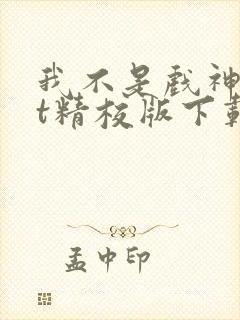 我不是戏神
t精校版下载
孟中印